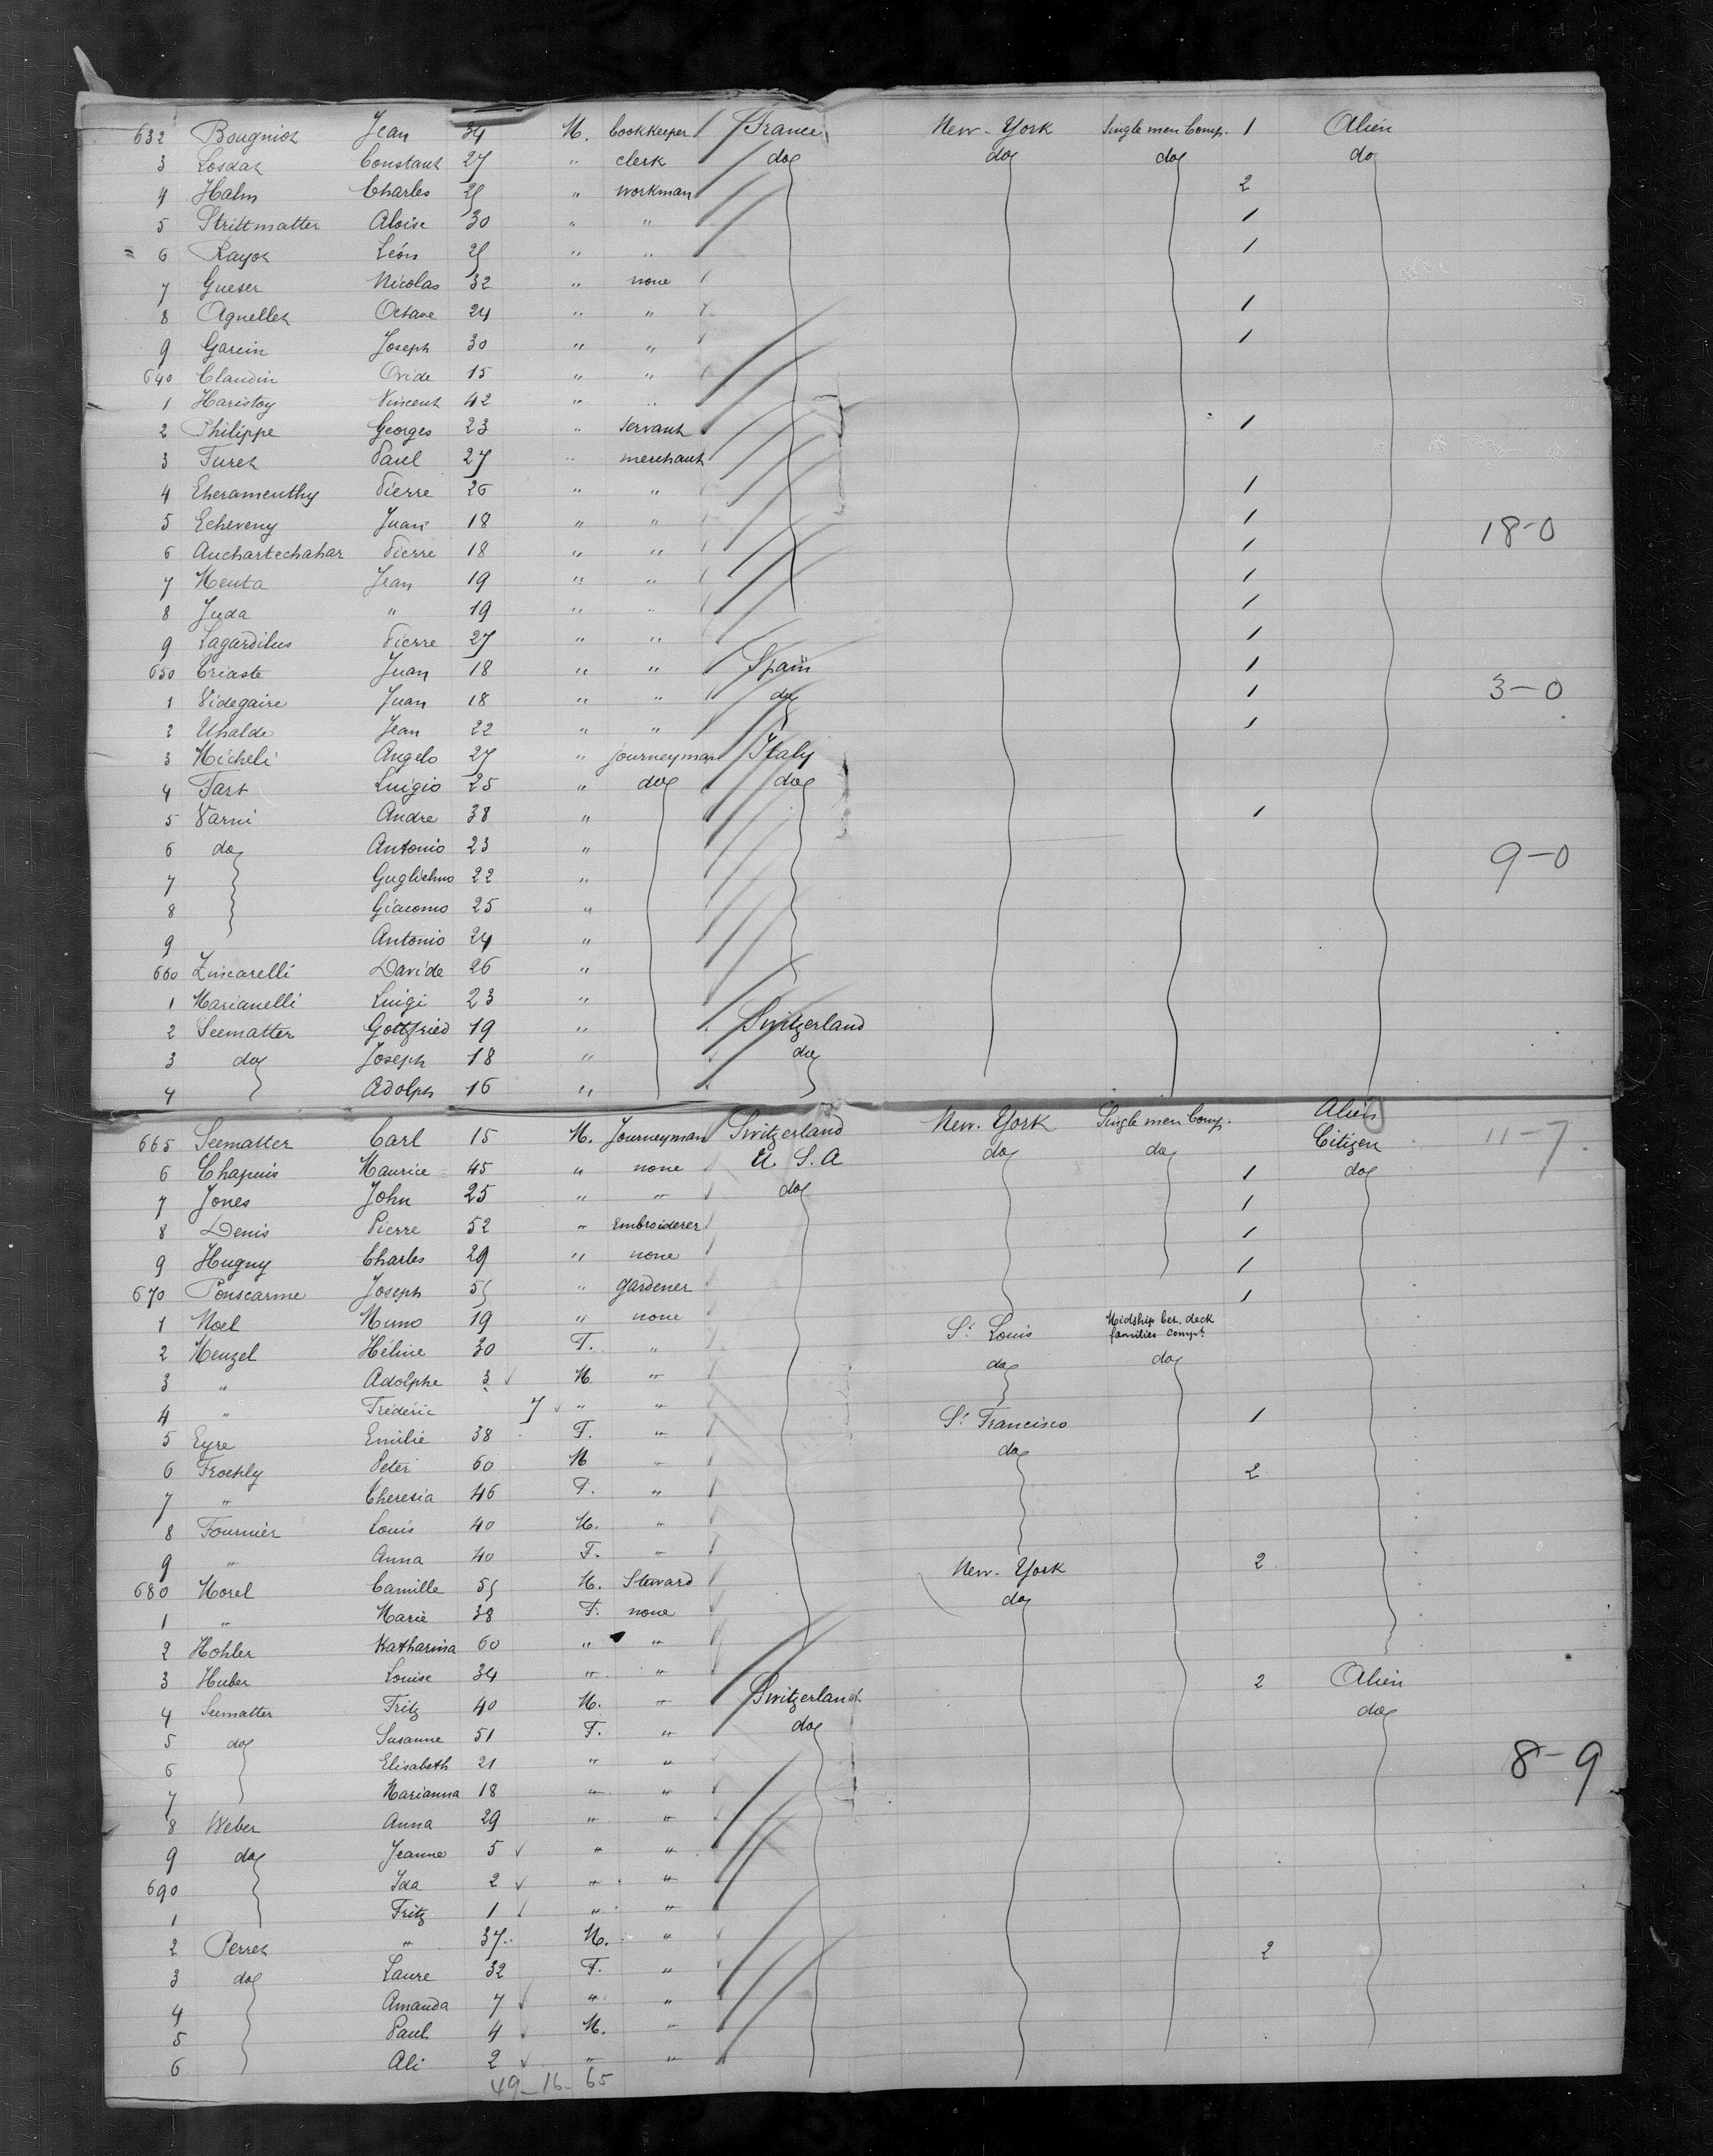 632 Bougniot Jean 34 M. bookkeeper / France New-York Single men Comp. 1 Alien
3 Losdat Constant 27 " clerk do do do do
4 Halm Charles 25 " workman 2
5 Strittmatter Aloise 30 " " 1
6 Rayot Léon 25 " " 1
7 Gueser Nicolas 32 " none
8 Agnellet Octave 24 " " 1
9 Garcin Joseph 30 " " 1
640 Claudin Ovide 15 " "
1 Haristoy Vincent 42 " "
2 Philippe Georges 23 " servant 1
3 Turet Paul 27 " merchant
4 Eheramenthy Pierre 26 " " 1
5 Echeveny Juan 18 " " 1 18-0
6 Auchartechahar Pierre 18 " " 1
7 Menta Jean 19 " " 1
8 Juda " 19 " " 1
9 Lagardilus Pierre 27 " " 1
650 Criaste Juan 18 " " Spain 1
1 Videgaire Juan 18 " " do 1 3-0
2 Uhalde Jean 22 " " 1
3 Micheli Angelo 27 " journeyman Italy
4 Tart Luigio 25 " do do
5 Varni Andre 38 " 1
6 do Antonio 23 " 9-0
7 Guglielmo 22 "
8 Giacomo 25 "
9 Antonio 24 "
660 Zuscarelli Davide 26 "
1 Marianelli Luigi 23 "
2 Seematter Gottfried 19 " Switzerland
3 do Joseph 18 " do
4 Adolph 16 "
665 Seematter Carl 15 M. Journeyman Switzerland New-York Single men Comp. Alien 11-7
6 Chapuis Maurice 45 " none U.S.A do do 1 Citizen
7 Jones John 25 " " do 1 do
8 Denis Pierre 52 " Embroiderer 1
9 Hugny Charles 29 " none 1
670 Ponscarme Joseph 55 " gardener 1
1 Noel Numo 19 " none St Louis Midship bet. deck families compt.
2 Menzel Héline 30 F. " do do
3 " Adolphe 3 M "
4 " Fréderic 7 " " St Francisco 1
5 Eyre Emilie 38 F. " do
6 Froehly Peter 60 M " 2
7 " Theresia 46 F. "
8 Fournier Louis 40 M. "
9 " Anna 40 F. " New-York 2
680 Morel Camille 55 M. Steward do
1 " Marie 38 F. none
2 Hohler Katharina 60 " "
3 Huber Louise 34 " " 2 Alien
4 Seematter Fritz 40 M. " Switzerland do
5 do Susanne 51 F. " do
6 Elisabeth 21 " " 8-9
7 Marianna 18 " "
8 Weber Anna 29 " "
9 do Jeanne 5 " "
690 Ida 2 " "
1 Fritz 1 " "
2 Perret " 37 M. " 2
3 do Laure 32 F. "
4 Amanda 7 " "
5 Paul 4 M. "
6 Ali 2 " "
49-16-65